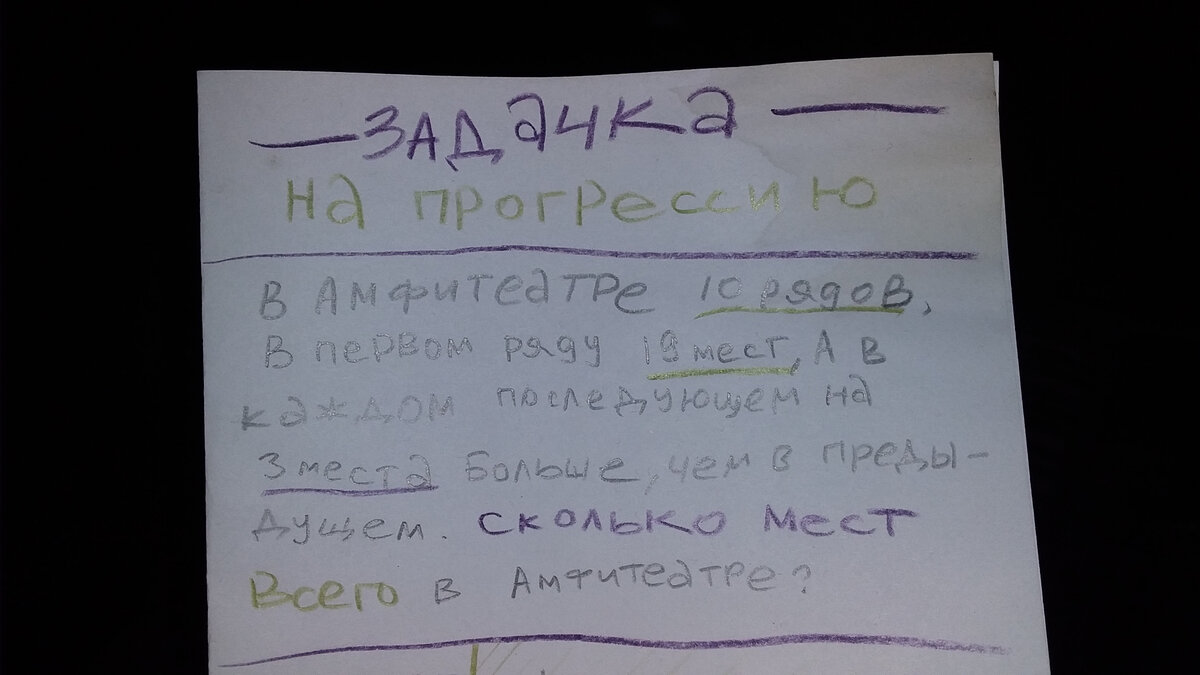 — ЗАДАЧКА —
На прогрессию
В Амфитеатре 10 рядов,
В первом ряду 19 мест, А в
каждом последующем на
3 места больше, чем в преды-
дущем. Сколько мест
Всего в Амфитеатре?